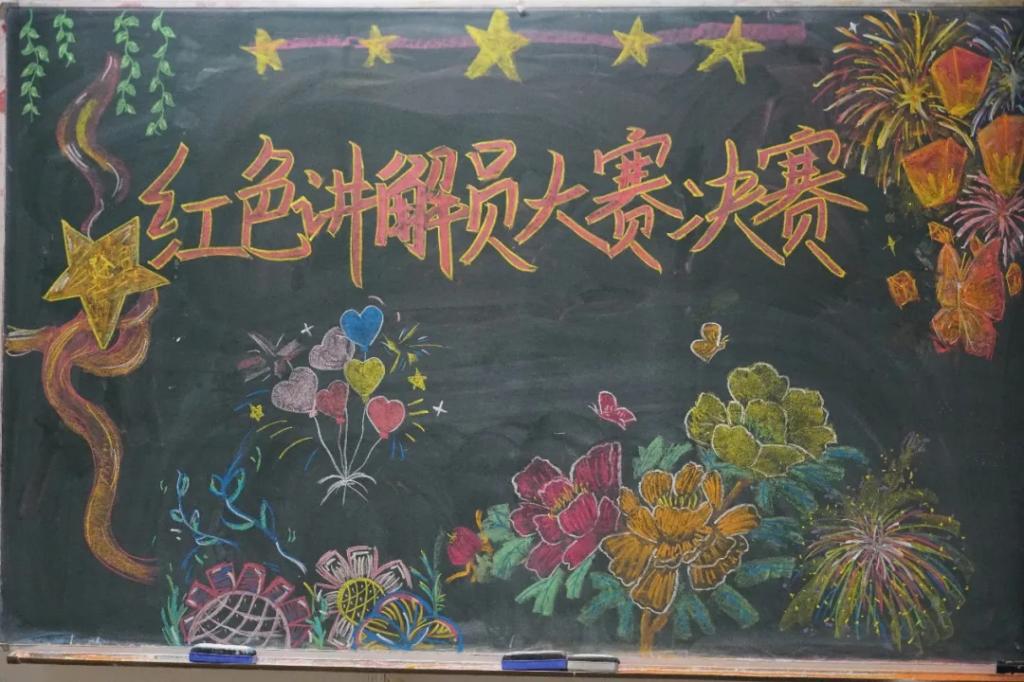 红色讲解员大赛决赛